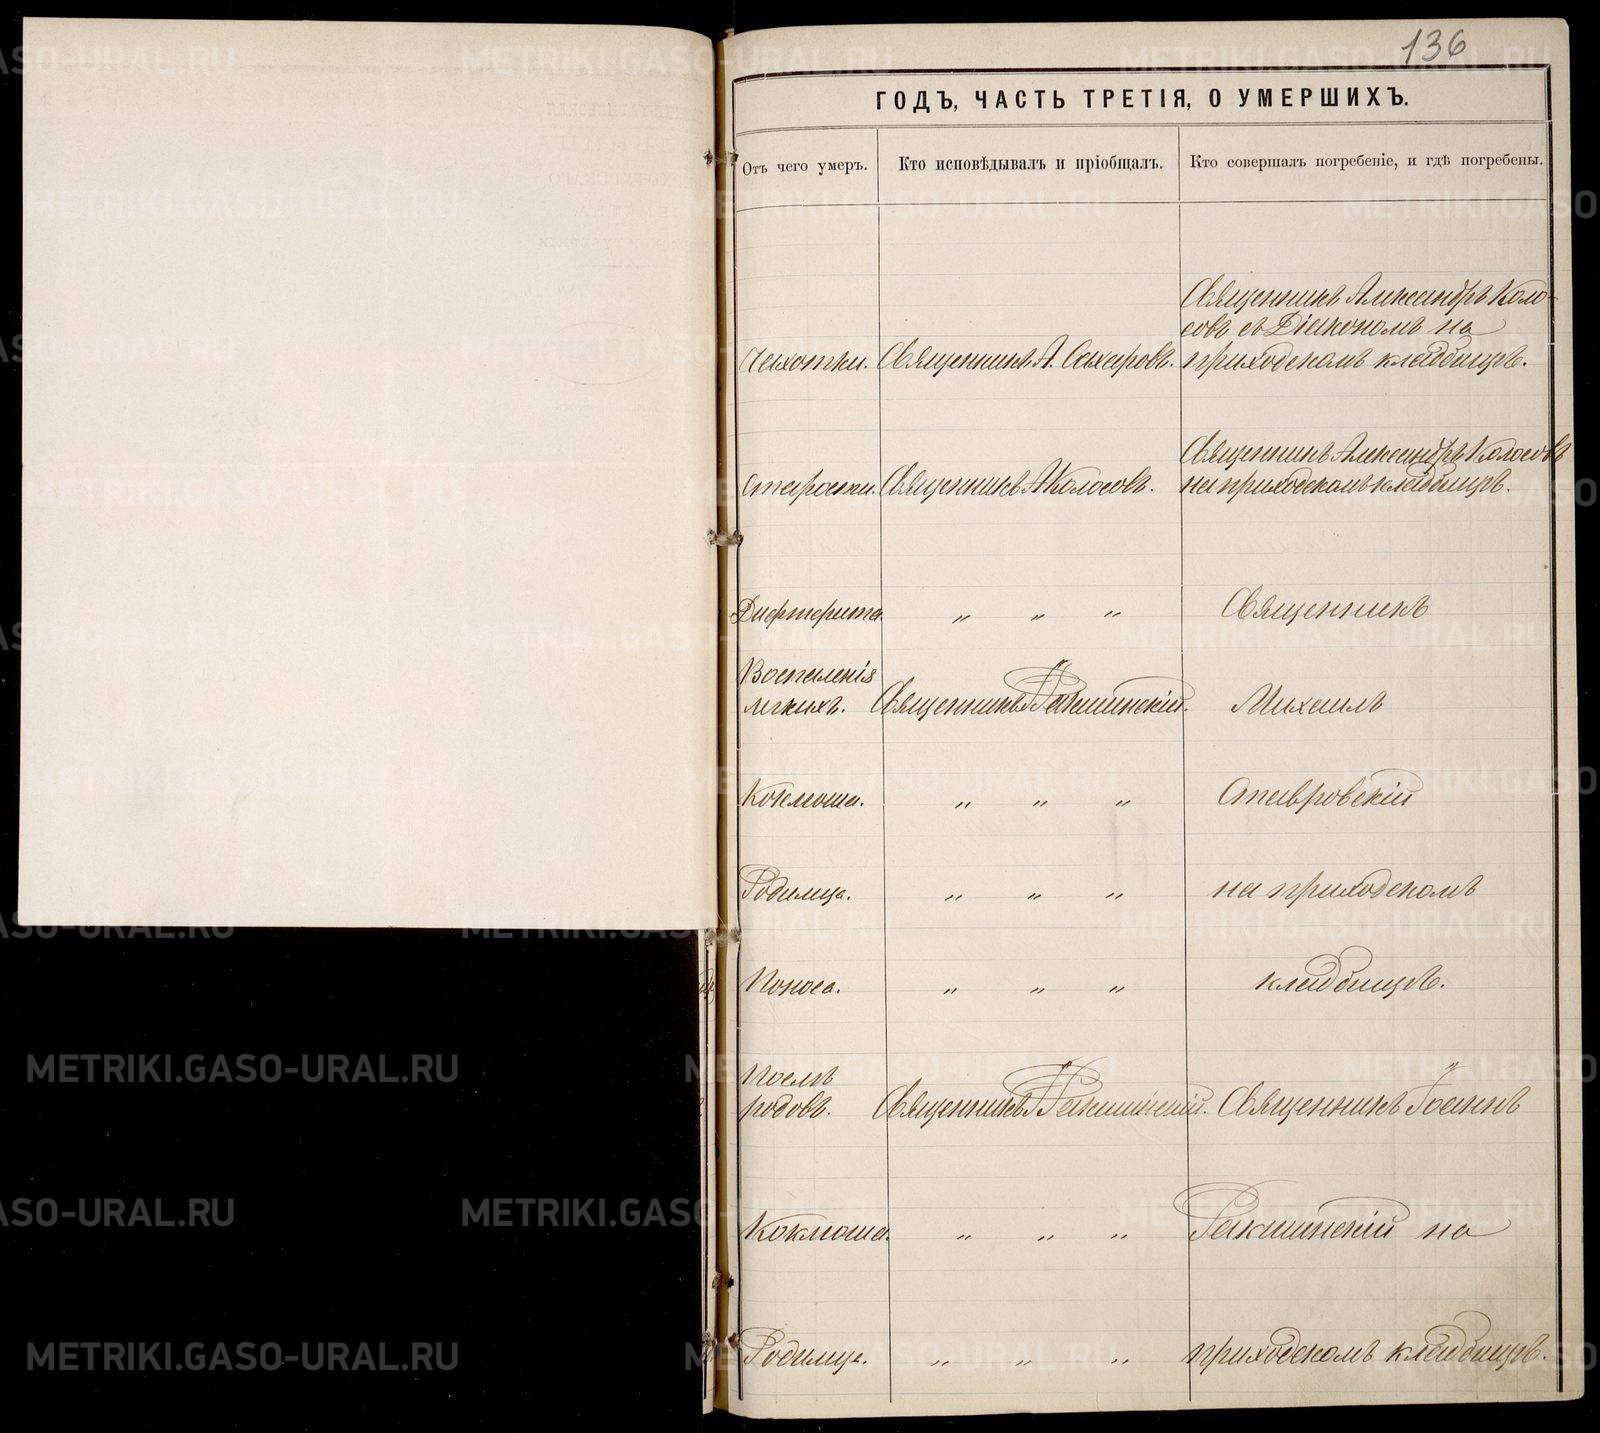 136
ГОДЪ, ЧАСТЬ ТРЕТІЯ, О УМЕРШИХЪ.
Отъ чего умеръ. Кто исповѣдывалъ и пріобщалъ. Кто совершалъ погребеніе, и гдѣ погребены.
Священникъ Александръ Коло-
совъ съ Діакономъ на
Чахотки. Священникъ А. Сахаровъ. приходскомъ кладбищѣ.
Священникъ Александръ Колосовъ
Старости. Священникъ А Колосовъ. на приходскомъ кладбищѣ.
Дифтерита. " " " Священникъ
Воспаленія
легкихъ. Священникъ І Ракшинскій. Михаилъ
Коклюша. " " " Ставровскій
Родимца. " " " на приходскомъ
Поноса. " " " кладбищѣ.
Послѣ
родовъ. Священникъ І Ракшинскій. Священникъ Іоаннъ
Коклюша. " " " Ракшинскій на
Родимца. " " " приходскомъ кладбищѣ.
METRIKI.GASO-URAL.RU